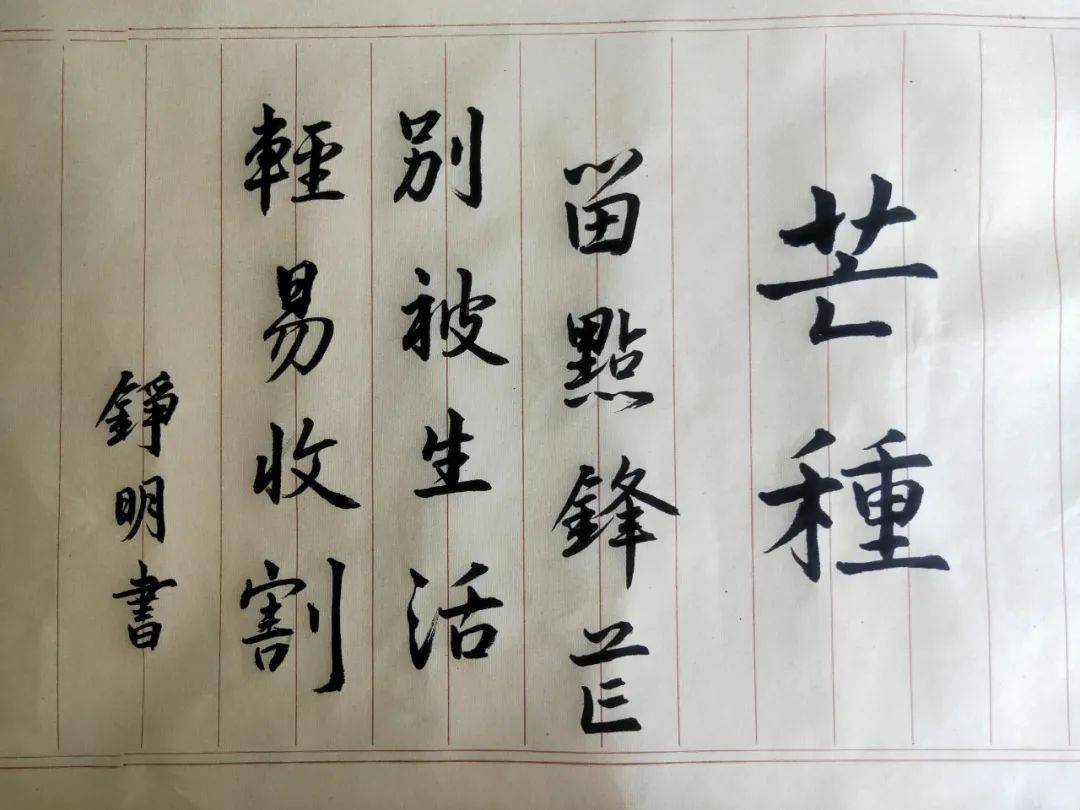 芒種
留點鋒芒
別被生活
輕易收割
錚明書